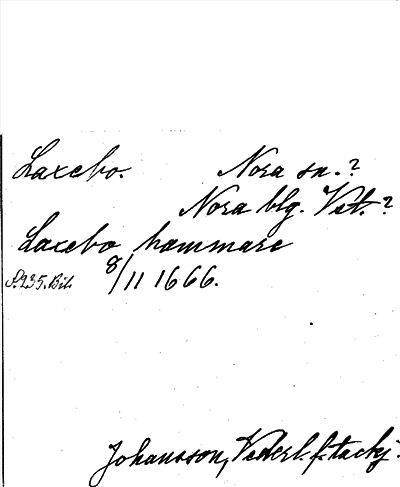 Laxebo. Nora sn.?
Nora blg. Vstm.?
Laxebo hammare
S. 235. Bil. 8/11 1666.
Johansson, Vederl. f. tackj.